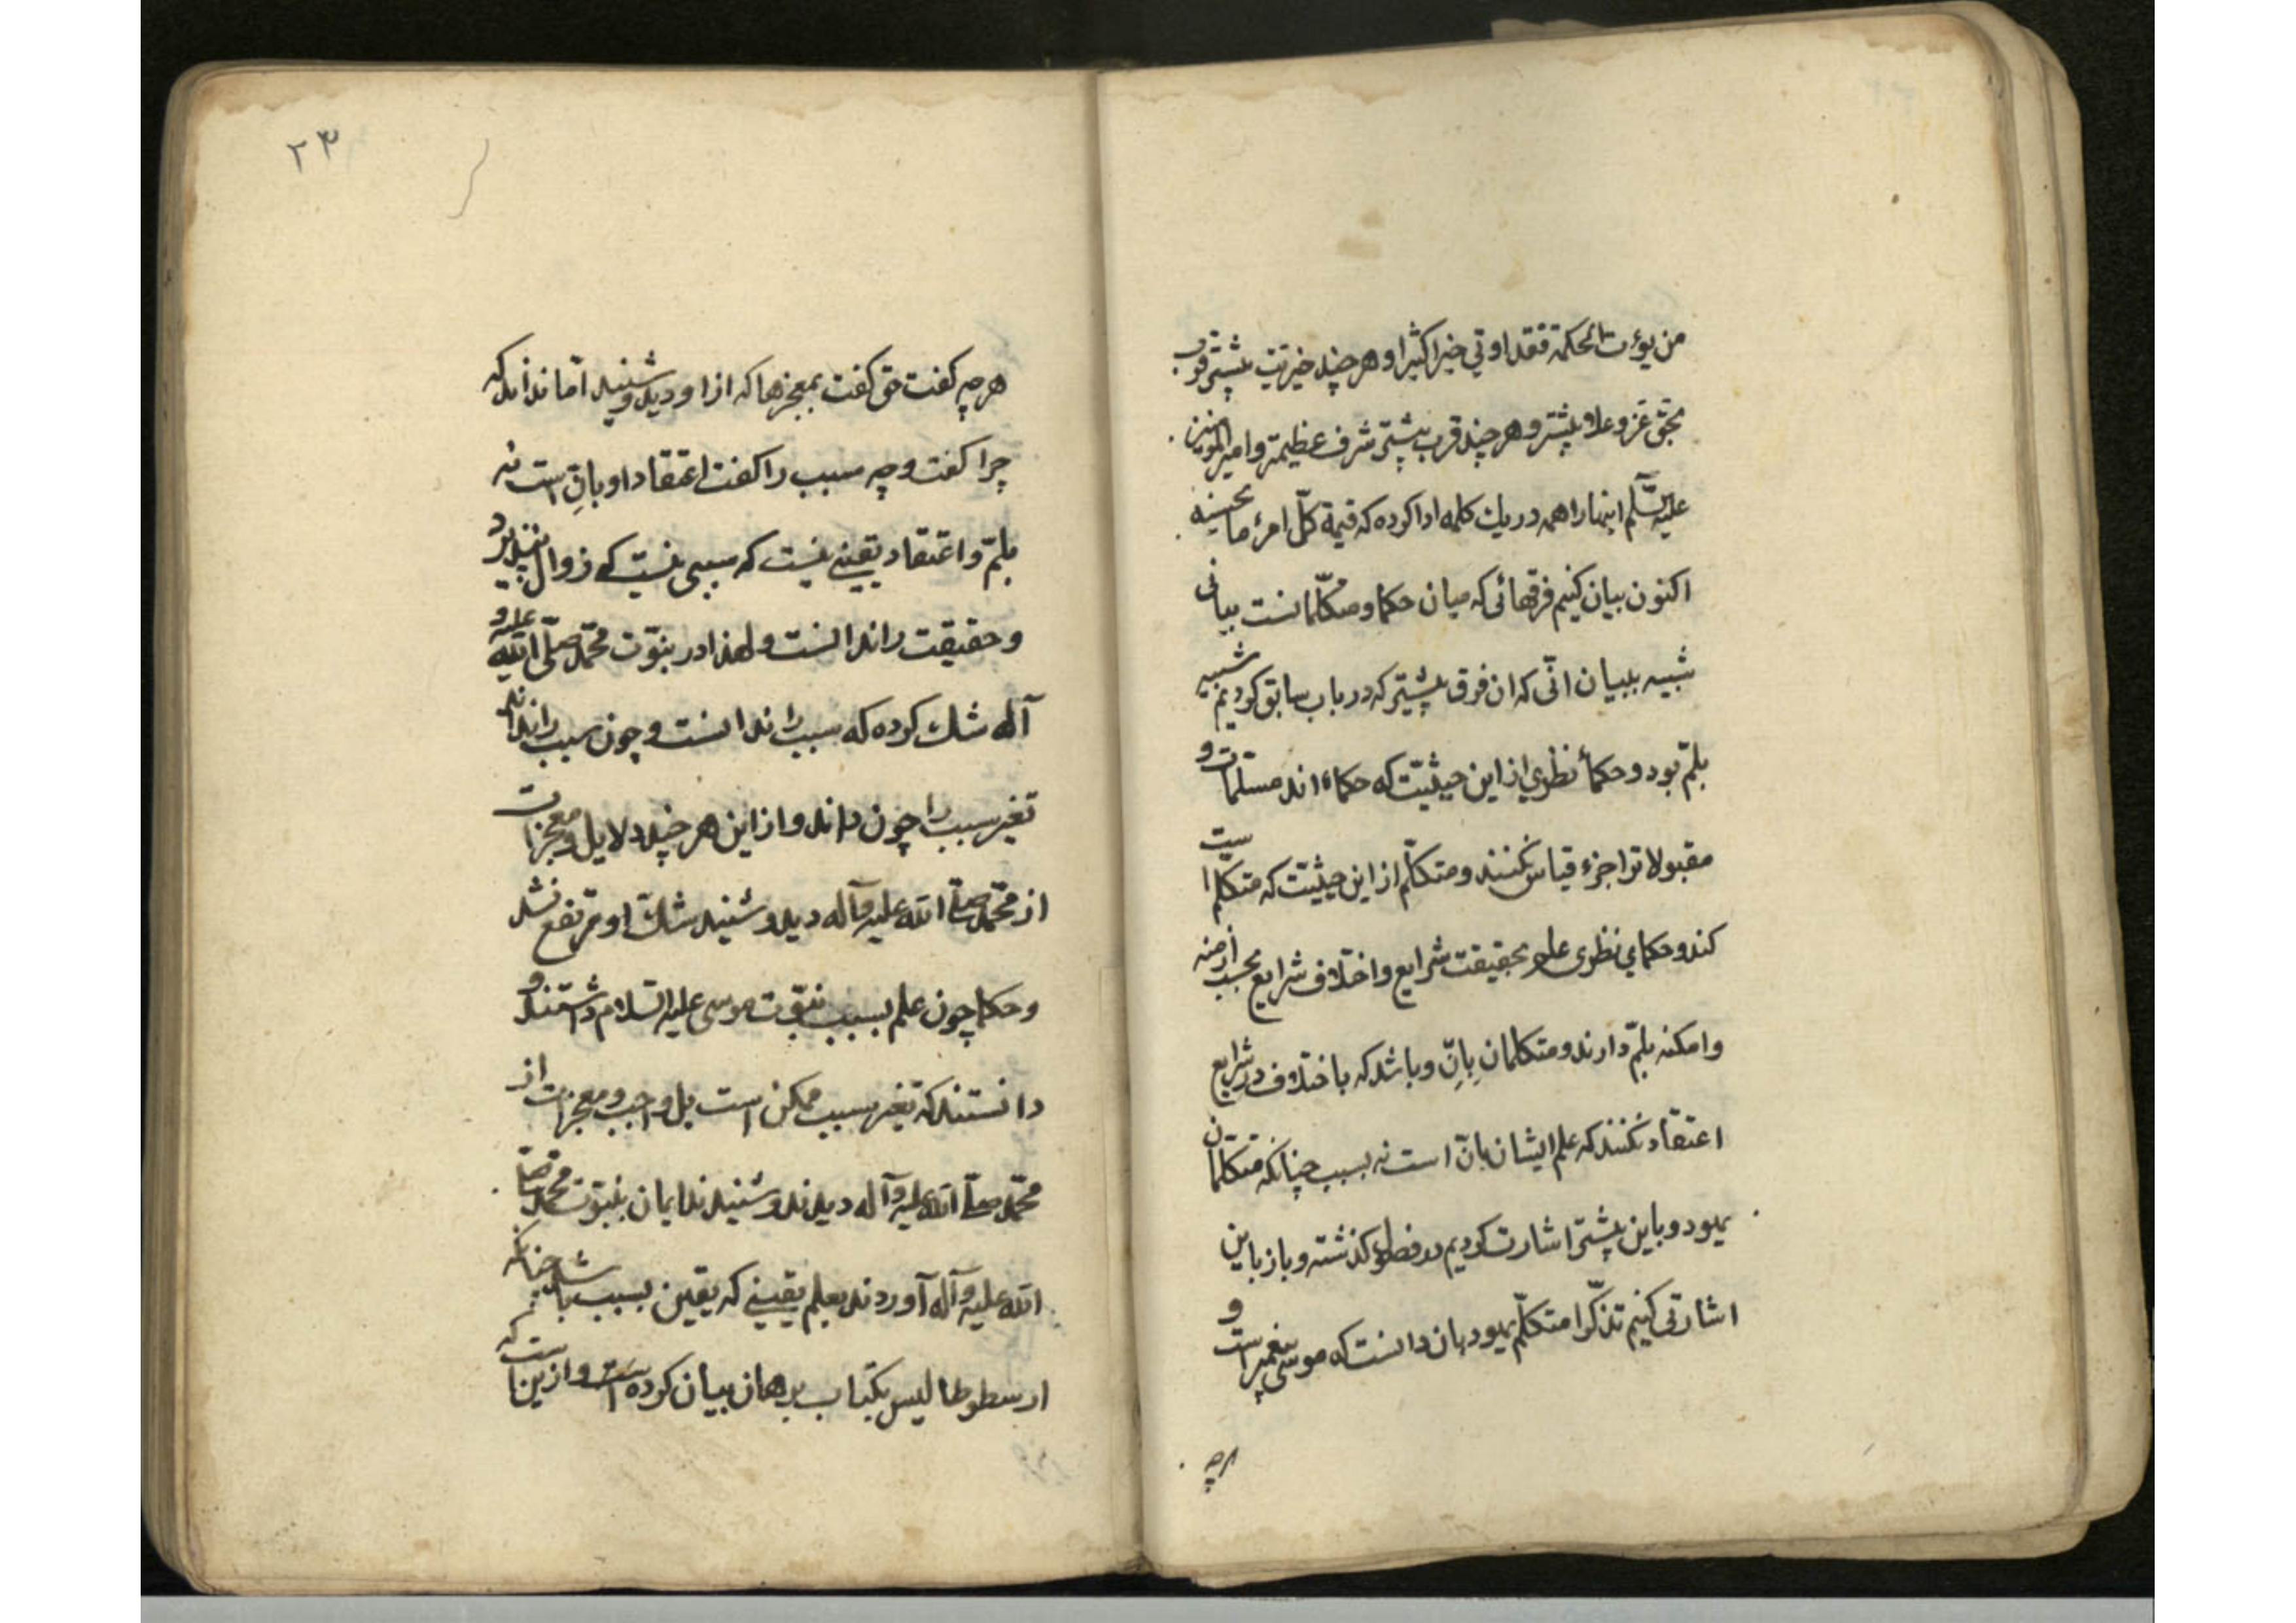 من يؤت الحكمة فقد اوتي خيرا كثيرا و هر چند خيريت بيشتر قرب
بحق عز و علا بيشتر و هر چند قرب بيشتر شرف عظيمتر و امير المؤمنين
عليه السلم اينها را همه در يك كلمه ادا كرده كه قيمة كل امرء ما يحسنه
اكنون بيان كنيم فرقهائى كه ميان حكما و متكلمانست بيانى
شبيه ببيان انّى كه ان فرق بيشتر كه در باب سابق كرديم شبيه
بلمّ بود و حكماء نظري از اين حيثيت كه حكماء اند مسلمات و
مقبولات را جزء قياس نكنند و متكلم از اين حيثيت كه متكلم است
كند و حكماي نظرى علم بحقيقت شرايع و اختلاف شرايع بحسب ازمنه
و امكنه بلمّ دارند و متكلمان بانّ و باشد كه باختلاف در شرايع
اعتقاد نكنند كه علم ايشان بانّ است نه بسبب چنانكه متكلمان
يهود و باين بيشتر اشارت كرديم در فصول گذشته و باز باين
اشارتى كنيم تذكرا متكلّم يهود بان دانست كه موسى پيغمبر است و
هرچه
۲۳
هرچه گفت حق گفت بمعجزها كه از او ديد و شنيد اما نداند كه
چرا گفت و چه سبب را گفت اعتقاد او بانّ است نه
بلمّ و اعتقاد يقينے نيست كه سببى نيست كه زوال نپذيرد
و حقيقت را ندانست و لهذا در نبوّت محمّد صلّى الله عليه و
آله شك كرده كه سبب را ندانست و چون سبب را نداند
تغير سبب را چون داند و از اين هر چند دلايل و معجزات
از محمّد صلّے الله عليه و آله ديد و شنيد شك او مرتفع نشد
و حكما چون علم بسبب نبوّت موسى عليه السلام داشتند و
دانستند كه تغير سبب ممكن است بل واجب و معجزات از
محمّد صلّے الله عليه و آله ديدند و شنيدند ايمان بنبوّت محمد صلّے
الله عليه و آله آوردند بعلم يقينے كه يقين بسبب باشد چنانكه
ارسطوطاليس بكتاب برهان بيان كرده است و ازين است كه